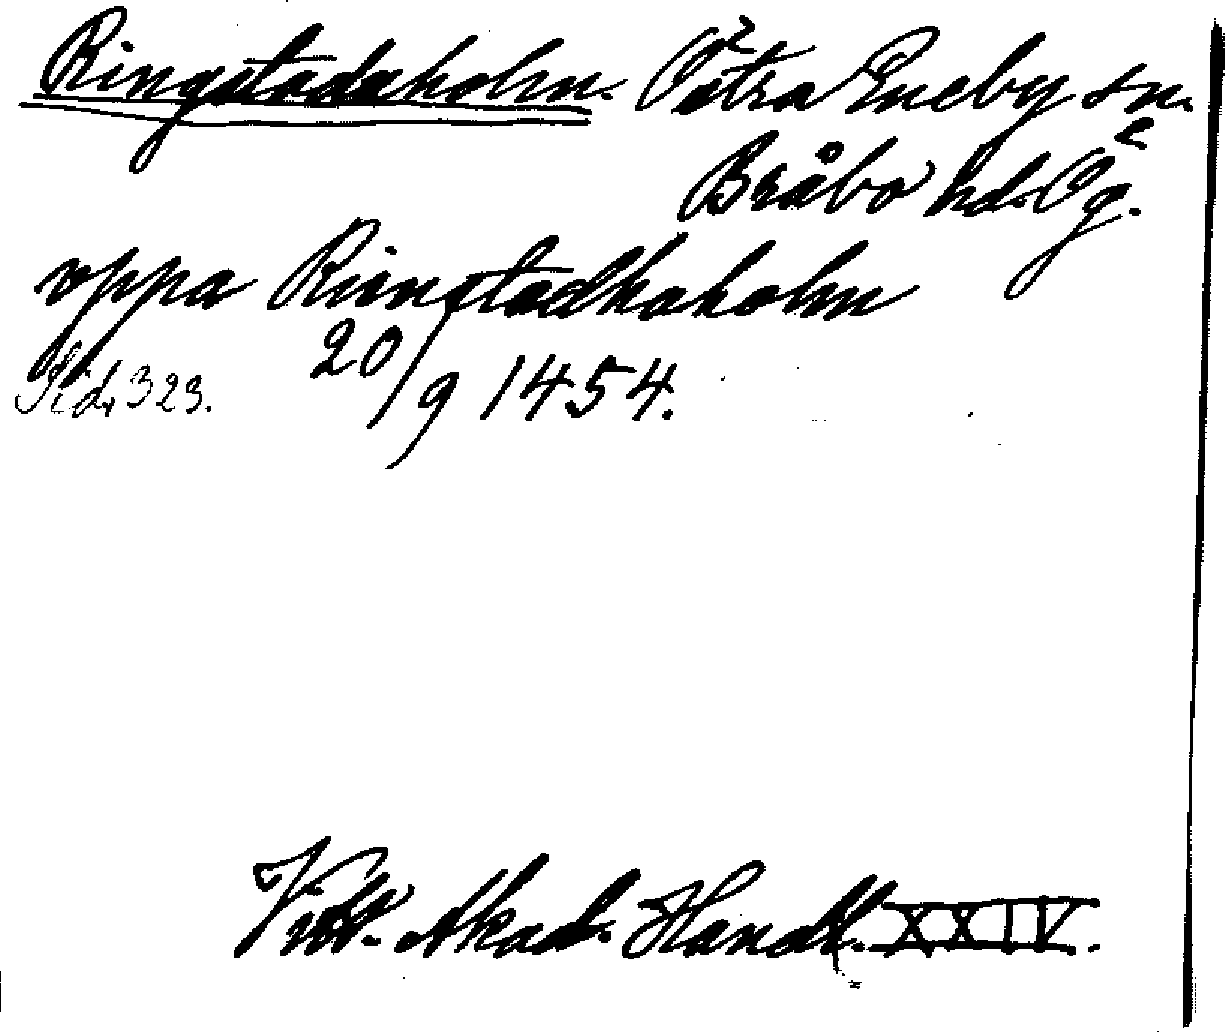 Ringstadaholm. Östra Eneby sn.
Bråbo hd. Ög.
oppa Ringstadhaholm
Sid. 323. 20/9 1454.
Vitt. Akad. Handl. XXIV.